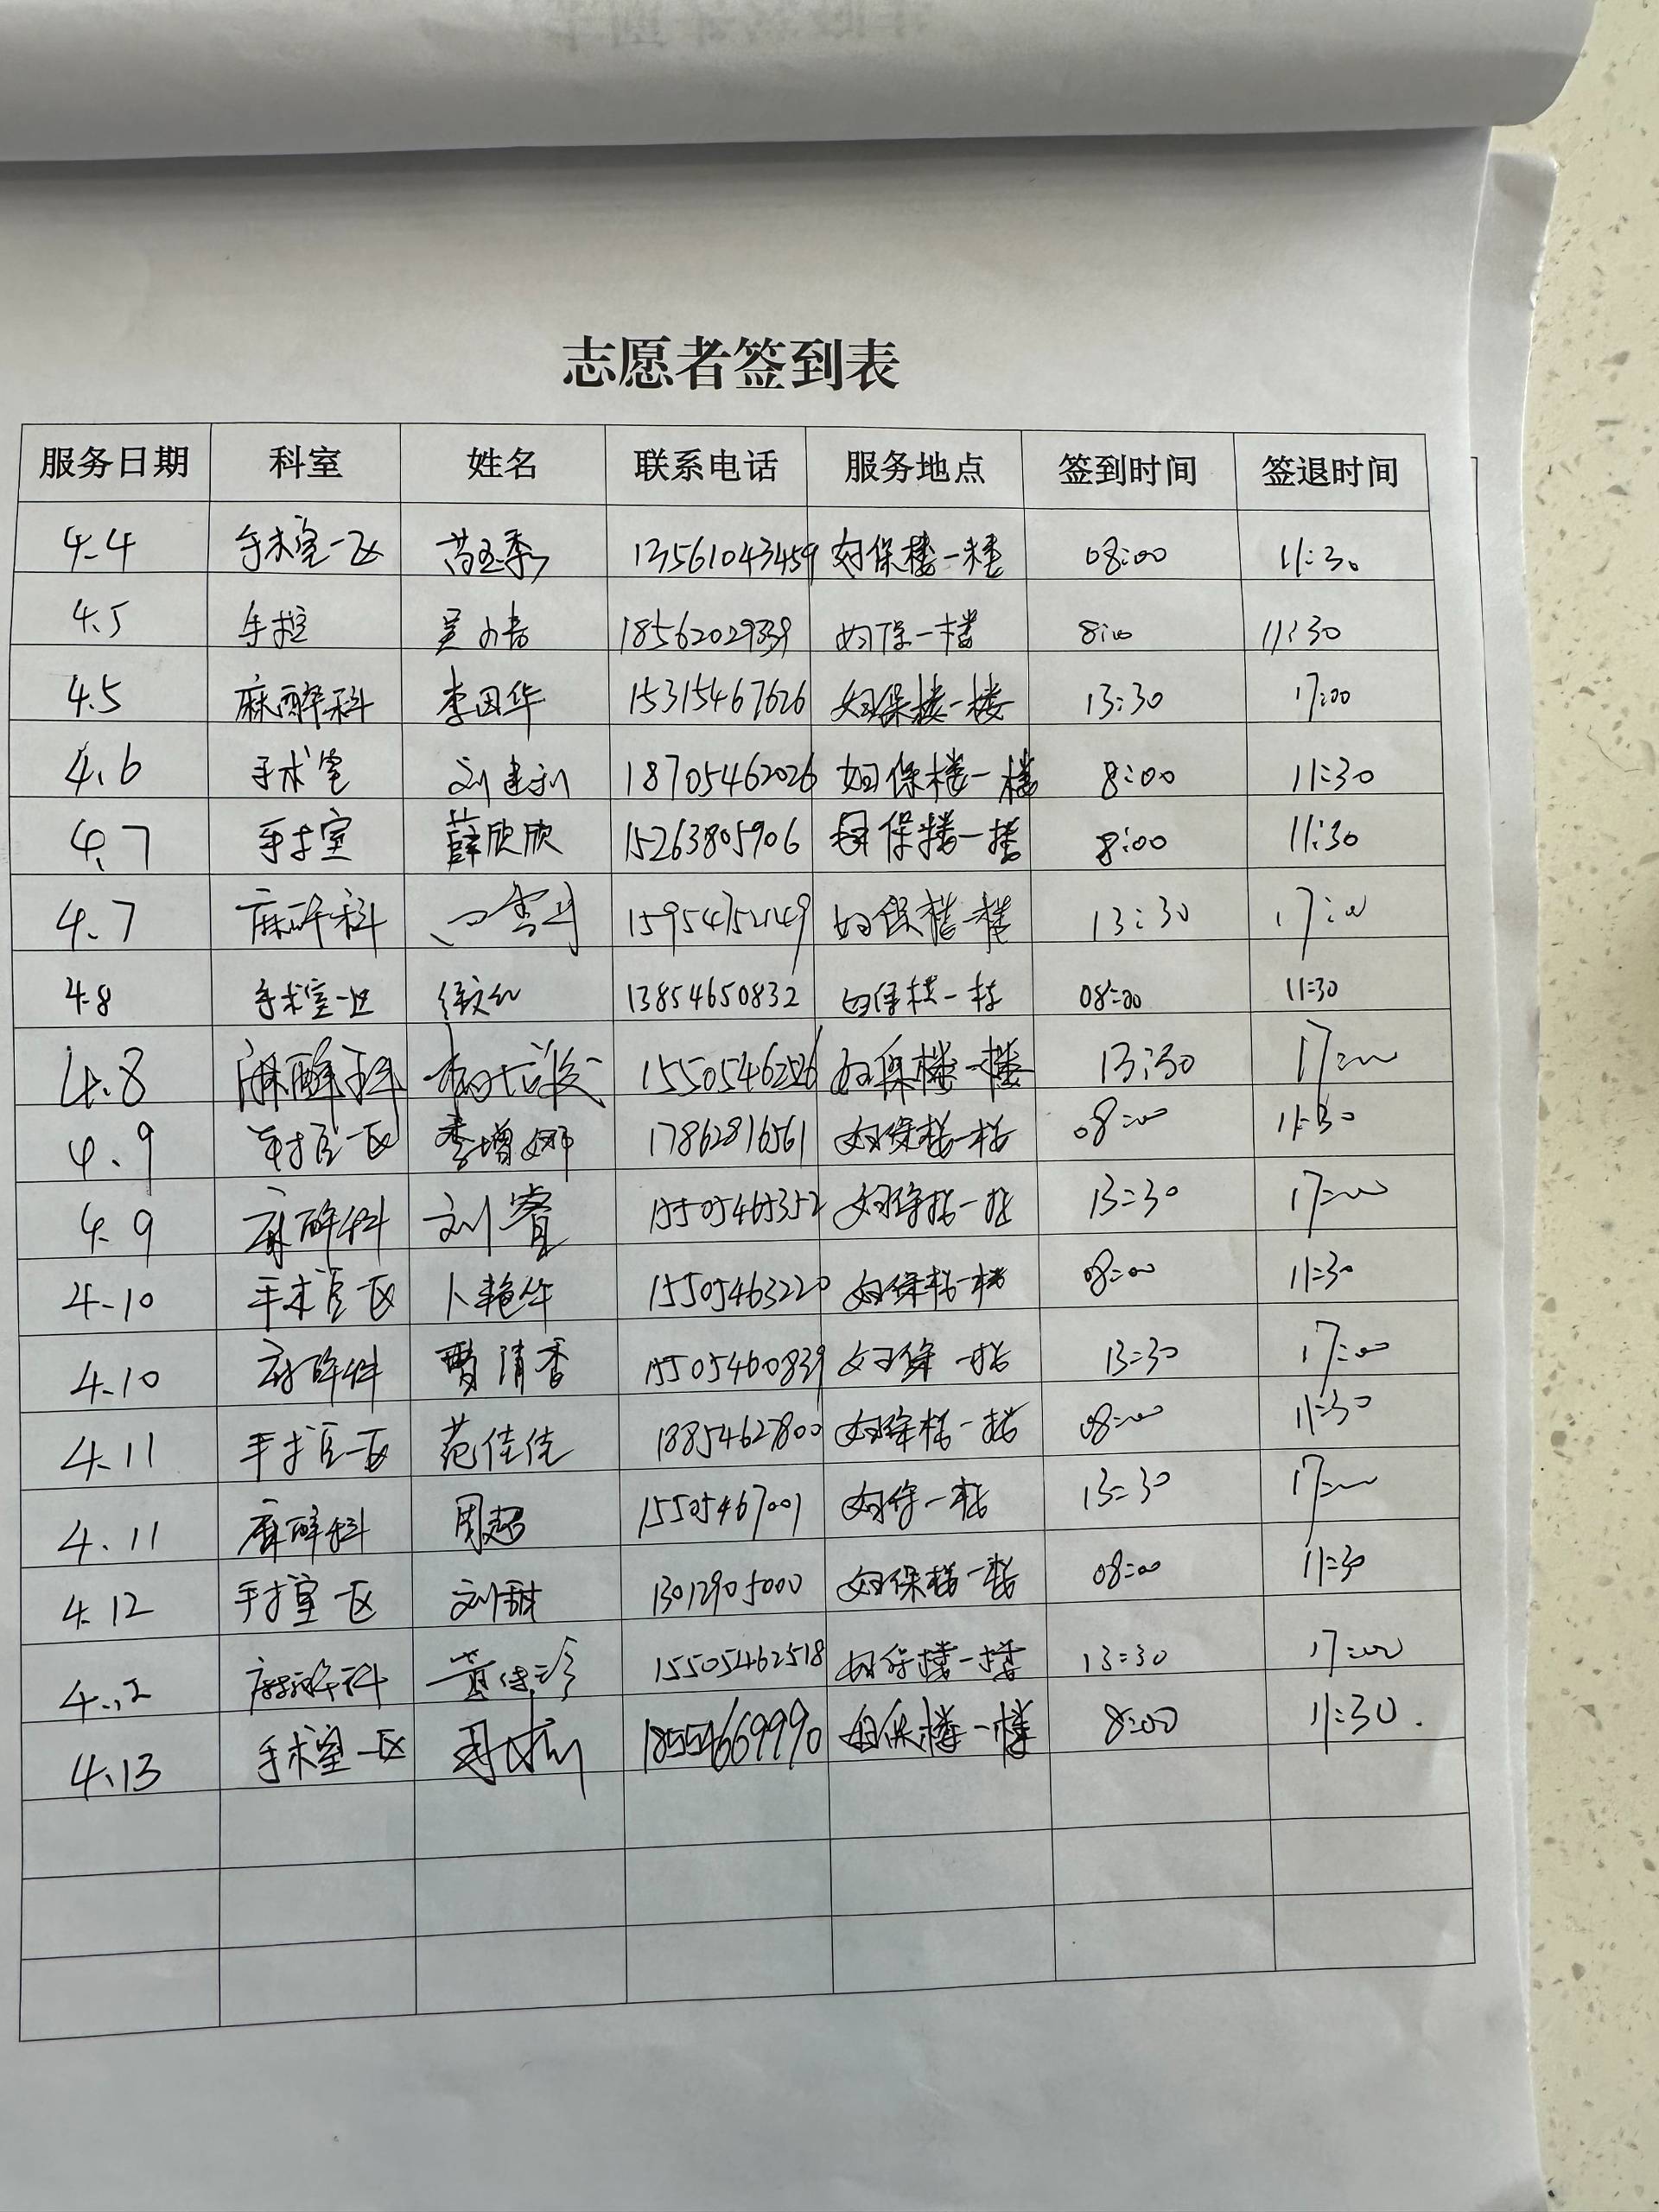 志愿者签到表
服务日期 科室 姓名 联系电话 服务地点 签到时间 签退时间
4.4 手术室一区 13561043459 妇保楼一楼 08:00 11:30
4.5 手术室 妇保一楼 8:00 11:30
4.5 麻醉科 李国华 15315467626 妇保楼一楼 13:30 17:00
4.6 手术室 刘建利 18705462026 妇保楼一楼 8:00 11:30
4.7 手术室 薛欣欣 15263805906 妇保楼一楼 8:00 11:30
4.7 麻醉科 妇保楼一楼 13:30 17:00
4.8 手术室一区 13854650832 妇保楼一楼 08:00 11:30
4.8 麻醉科 妇保楼一楼 13:30 17:00
4.9 手术室一区 李增娜 17862816561 妇保楼一楼 08:00 11:30
4.9 麻醉科 刘睿 15505465352 妇保楼一楼 13:30 17:00
4.10 手术室一区 卜艳华 15505463220 妇保楼一楼 08:00 11:30
4.10 麻醉科 曹清香 15505460839 妇保一楼 13:30 17:00
4.11 手术室一区 范佳佳 18854627800 妇保楼一楼 08:00 11:30
4.11 麻醉科 周超 15505467001 妇保一楼 13:30 17:00
4.12 手术室一区 刘甜 13012905000 妇保楼一楼 08:00 11:30
4.12 麻醉科 15505462518 妇保楼一楼 13:30 17:00
4.13 手术室一区 18554669990 妇保楼一楼 8:00 11:30.